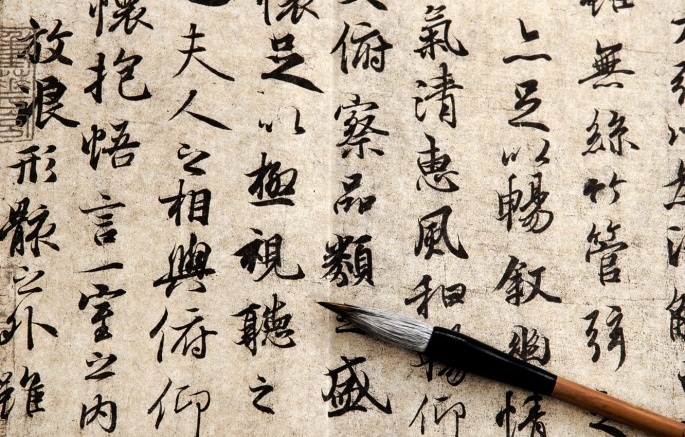 引以為流觴
雖無絲竹管弦之
亦足以暢叙幽情
氣清惠風和暢仰
大俯察品類之盛
懷足以極視聽之
夫人之相與俯仰
懷抱悟言一室之内
放浪形骸之外雖